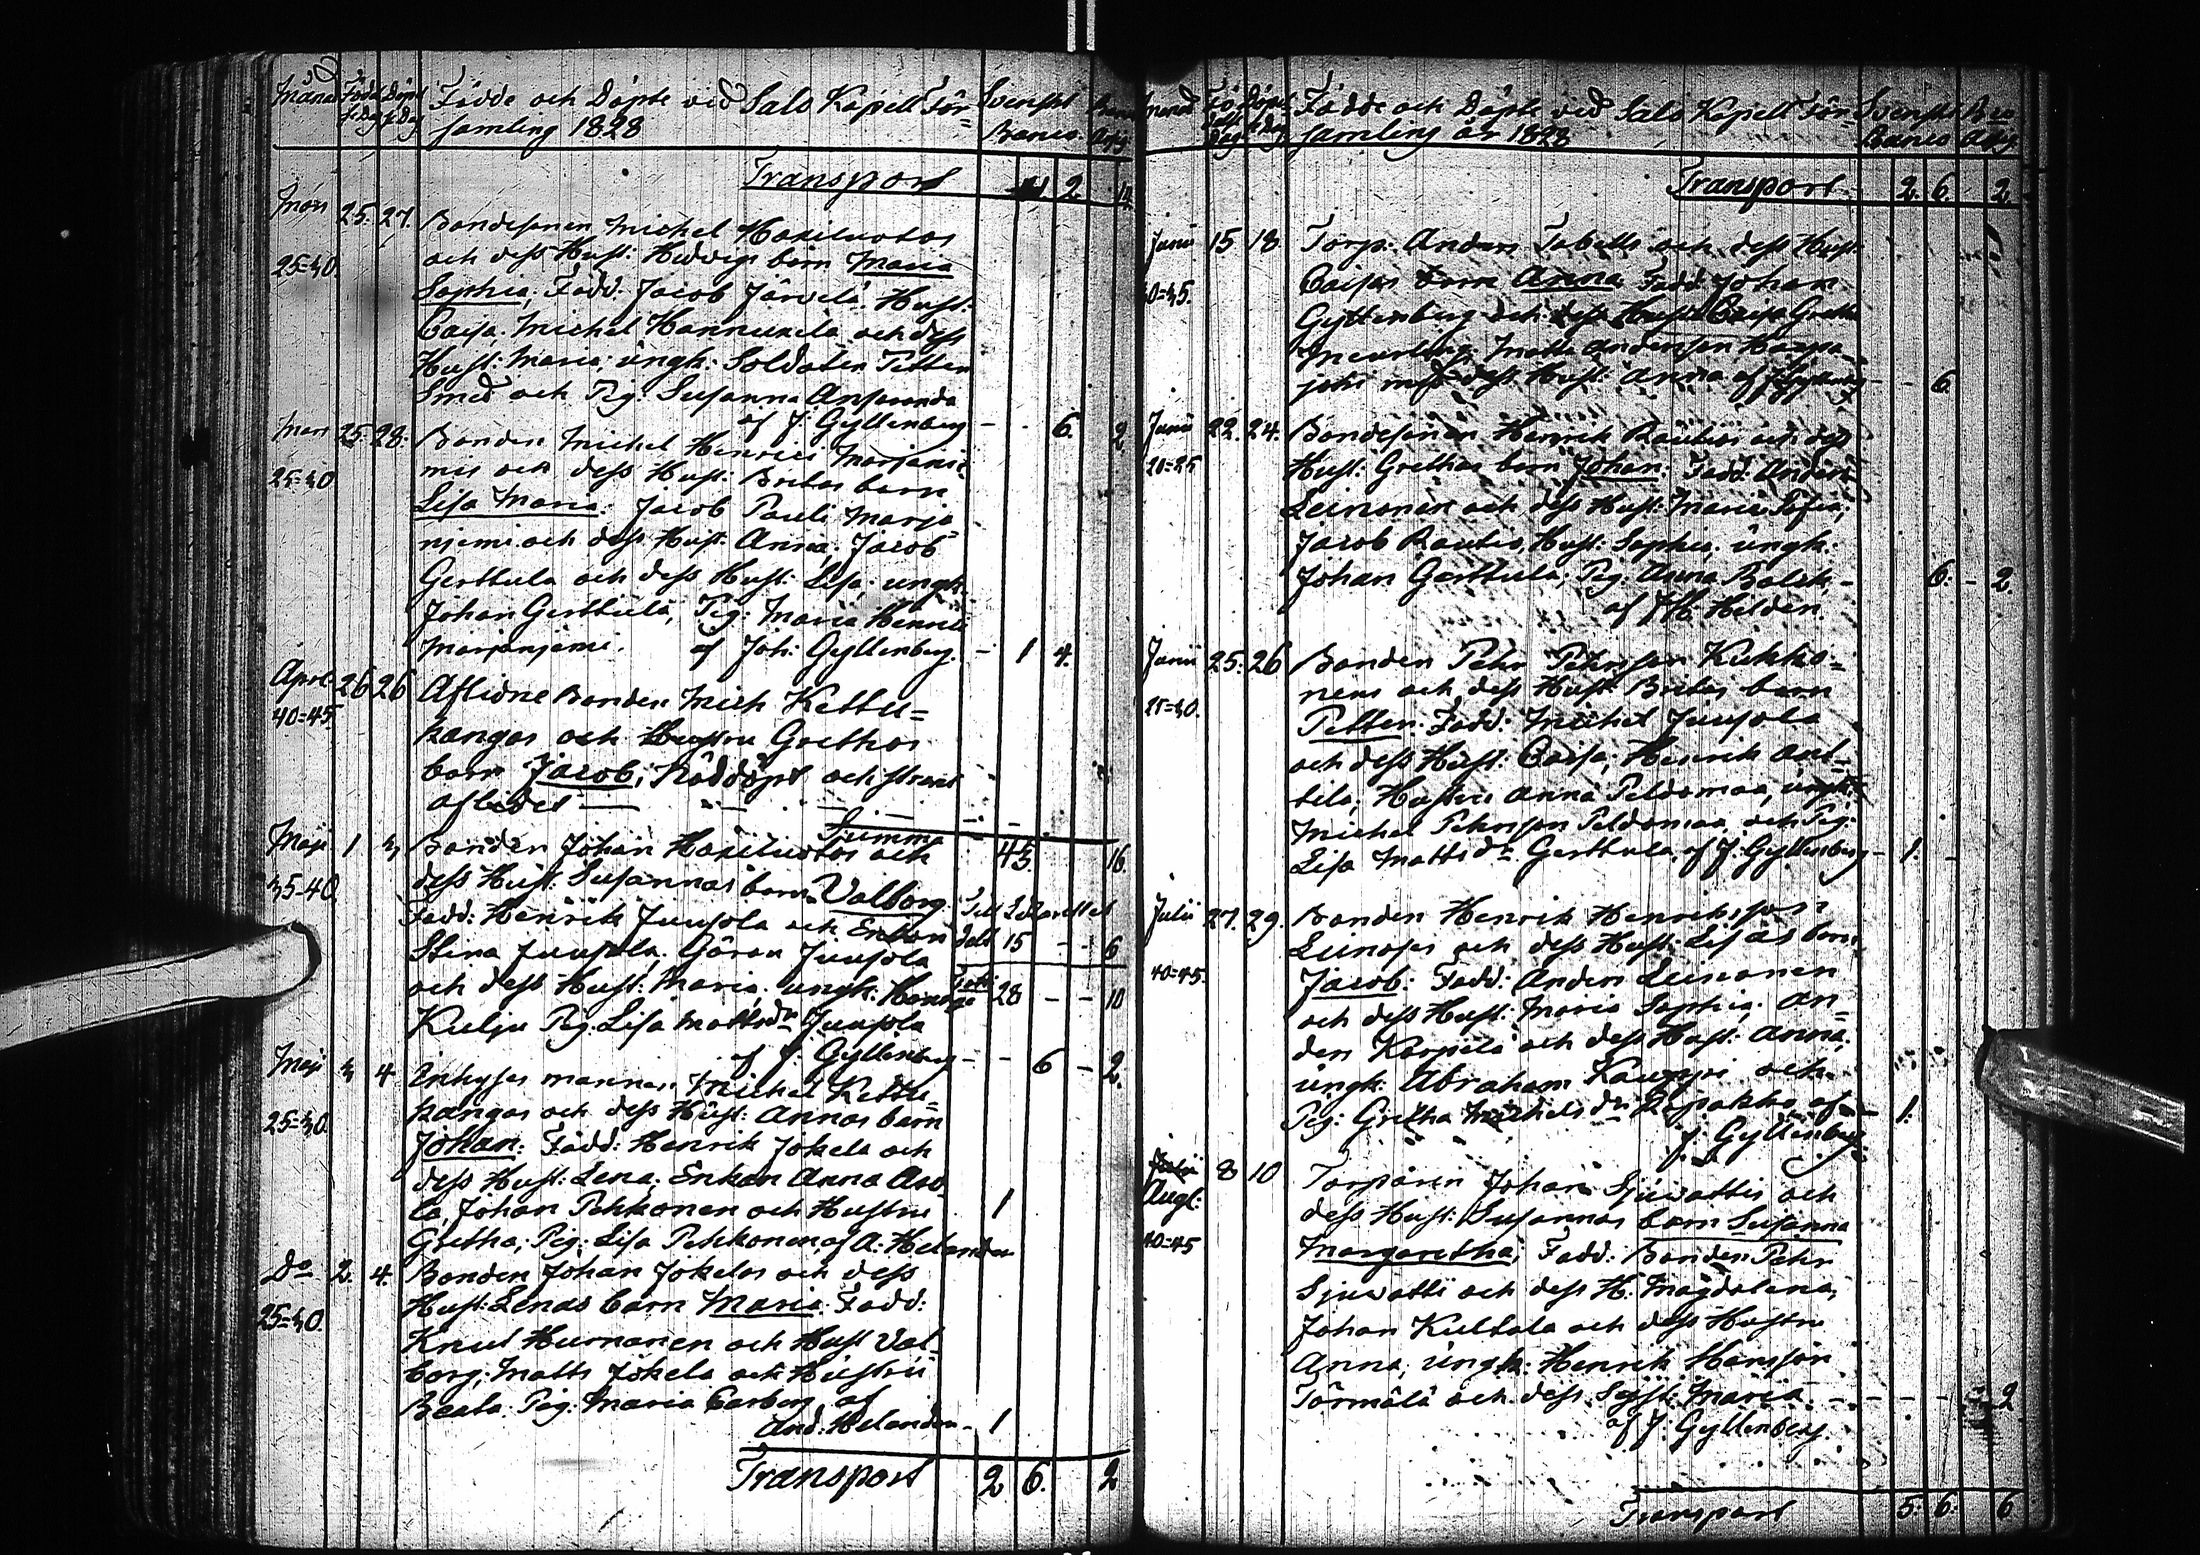 Månad Född Döpt Födde och Döpte vid Sals Kapell För= Svenskt
f: Dag f: Dag samling 1828 Banco.
Transport 2.
Mars 25. 27. Bondesonen Michel Haxiluotos
och dess Hust: Hedvigs barn Maria
25=30. Sophia; Fadd: Jacob Järvelä Hust:
Caisa, Michel Hannuxela och dess
Hust: Maria; ungk: Soldaten Petter
Smed och Pig. Susanna
af J: Gyllenberg - - 6. 2.
Mars 25. 28. Bonden Michel Henrici Marjanie=
mis och dess Hust: Britas barn
25=30 Lisa Maria: Jacob Pauli Marja=
njemi och dess Hust: Anna; Jacob
Gerttula och dess Hust: Lisa; ungk:
Johan Gerttula, Pig: Maria Henrici
Marjanjemi. af Joh: Gyllenberg. - 1 4.
Apr 26 26 Aflidne Bonden Mich Kettu=
40=45 kangas och Hustru Grethas
barn Jacob; Nöddöpt och strax
aflidet
Summa
Maji 1 3 Bonden Johan Haxiluotos och 45. 16.
35-40. dess Hust: Susannas barn Valborg.
Fadd: Henrik Junsola och Enkan
Stina Junsola, Göran Junsola 15 - - 6
och dess Hust: Maria. ungk: 28 - - 10
Kulju Pig: Lisa Mattsdr Junsola
af J. Gyllenberg - - 6 - 2.
Maji 3 4. Inhyses mannen Michel Kettu=
kangas och dess Hust: Annas barn
25=30. Johan. Fadd: Henrik Jokela och
dess Hust: Lena; Enkan Anna
la, Johan Pekkonen och Hustru 1
Gretha; Pig: Lisa Pekkonen, af A: Helander
Do 2. 4. Bonden Johan Jokelas och dess
Hust: Lenas barn Maria. Fadd:
25=30. Knut Hurnanen och Hust Val=
borg; Matts Jokela och Hustru
Beata. Pig: Maria Carberg af
And: Helander - 1
Transport 2 6. 2
Månad Född Döpt Födde och Döpte vid Sals Kapell För= Svenskt
Dag Dag samling år 1828 Banco
Transport 2. 6. 2.
Junii 15 18. Torp: Anders Tabells och dess Hust:
30=35. Caisas barn Anna Fadd: Johan
Gyllenberg och dess Hust: Caisa Greta
Matts Andersson
dess Hust: Anna af J Gyllenberg - - 6
Junii 22. 24. Bondesonen Henrik Rautios och dess
20=25 Hust: Grethas barn Johan. Fadd: Anders
Leinonen och dess Hust: Maria Sofia;
Jacob Rautio, Hust: Sophia. ungk:
Johan Gerttula, Pig: Anna - 6. - 2.
af J H: Hilden.
Junii 25. 26 Bonden Pehr Pehrsson Kukko=
nens och dess Hust Britas barn
25=30. Petter. Fadd: Michel Junsola
och dess Hust: Caisa; Henrik Ant=
tila; Hustru Anna Peldomaa, ungk:
Michel Pehrsson Peldomaa och Pig:
Lisa Mattsdr Gerttula, af J: Gyllenberg - 1. -
Julii 27. 29. Bonden Henrik Henriksson
och dess Hust: Lisas barn
40=45. Jacob: Fadd: Anders Leinonen
och dess Hust: Maria Sophia. An=
ders Karpelä och dess Hust: Anna;
ungk: Abraham Kauppi och
Pig: Gretha Michelsdr af 1.
J: Gyllenberg
Augt: 8 10 Torparen Johan Sjuvattis och
dess Hust: Susannas barn Susanna
40=45 Margaretha; Fadd: Bonden Pehr
Sjuvatti och dess H: Magdalena,
Johan Kultala och dess Hustru
Anna; ungk: Henrik Hansson
Törmälä och dess Syst: Maria. - - - - 2
af J: Gyllenberg.
Transport 5. 6. 6